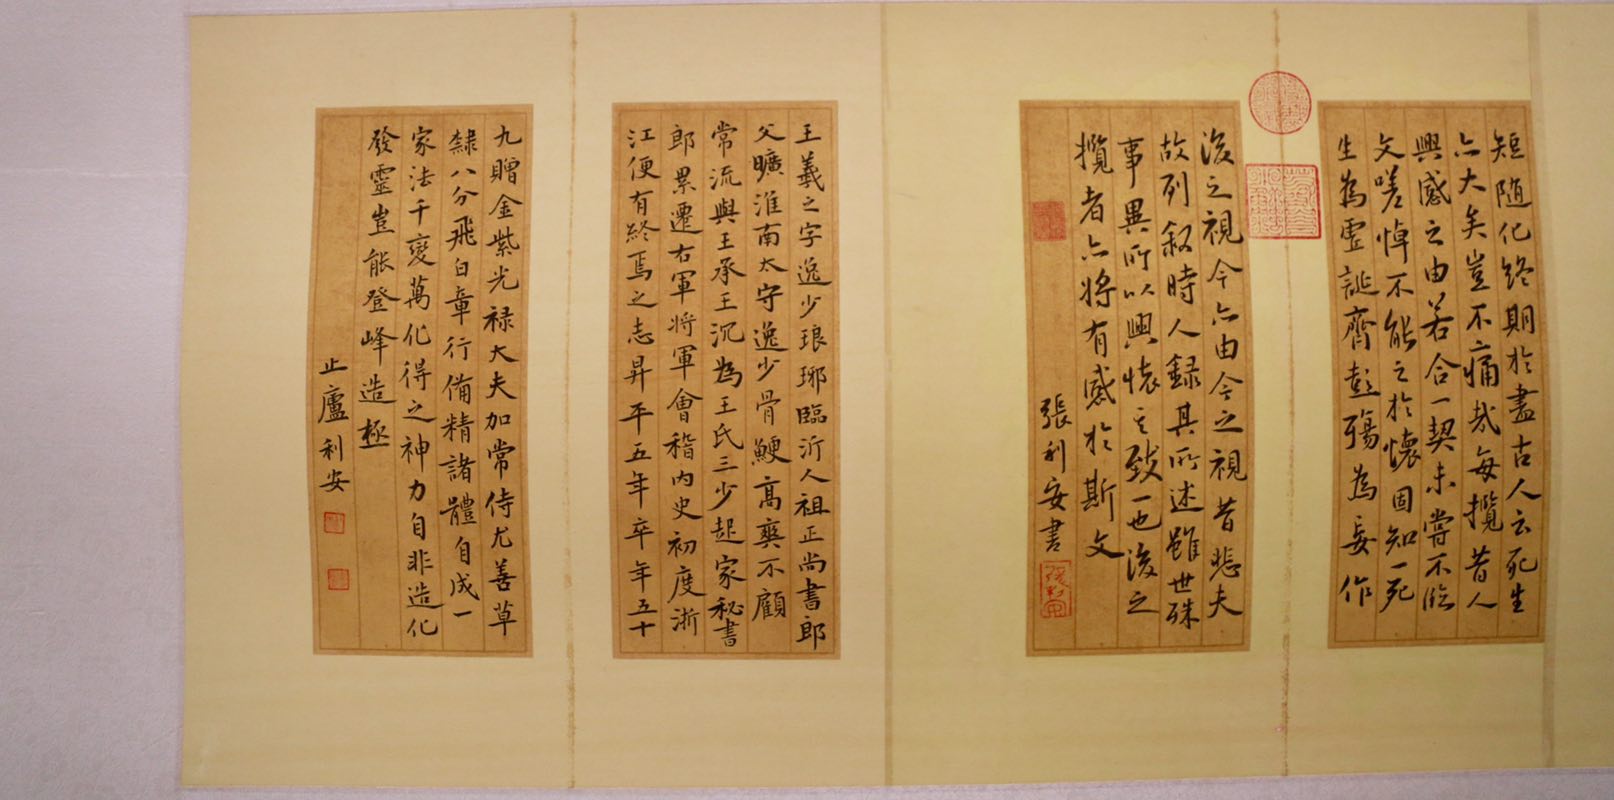 短隨化終期於盡古人云死生
亦大矣豈不痛哉每攬昔人
興感之由若合一契未嘗不臨
文嗟悼不能之於懷固知一死
生為虛誕齊彭殤為妄作
後之視今亦由今之視昔悲夫
故列叙時人録其所述雖世殊
事異所以興懷其致一也後之
攬者亦將有感於斯文
張利安書
王羲之字逸少琅琊臨沂人祖正尚書郎
父曠淮南太守逸少骨鯁高爽不顧
常流與王承王沉為王氏三少起家秘書
郎累遷右軍將軍會稽內史初度浙
江便有終焉之志昇平五年卒年五十
九贈金紫光禄大夫加常侍尤善草
隸八分飛白章行備精諸體自成一
家法千變萬化得之神力自非造化
發靈豈能登峰造極
止廬利安